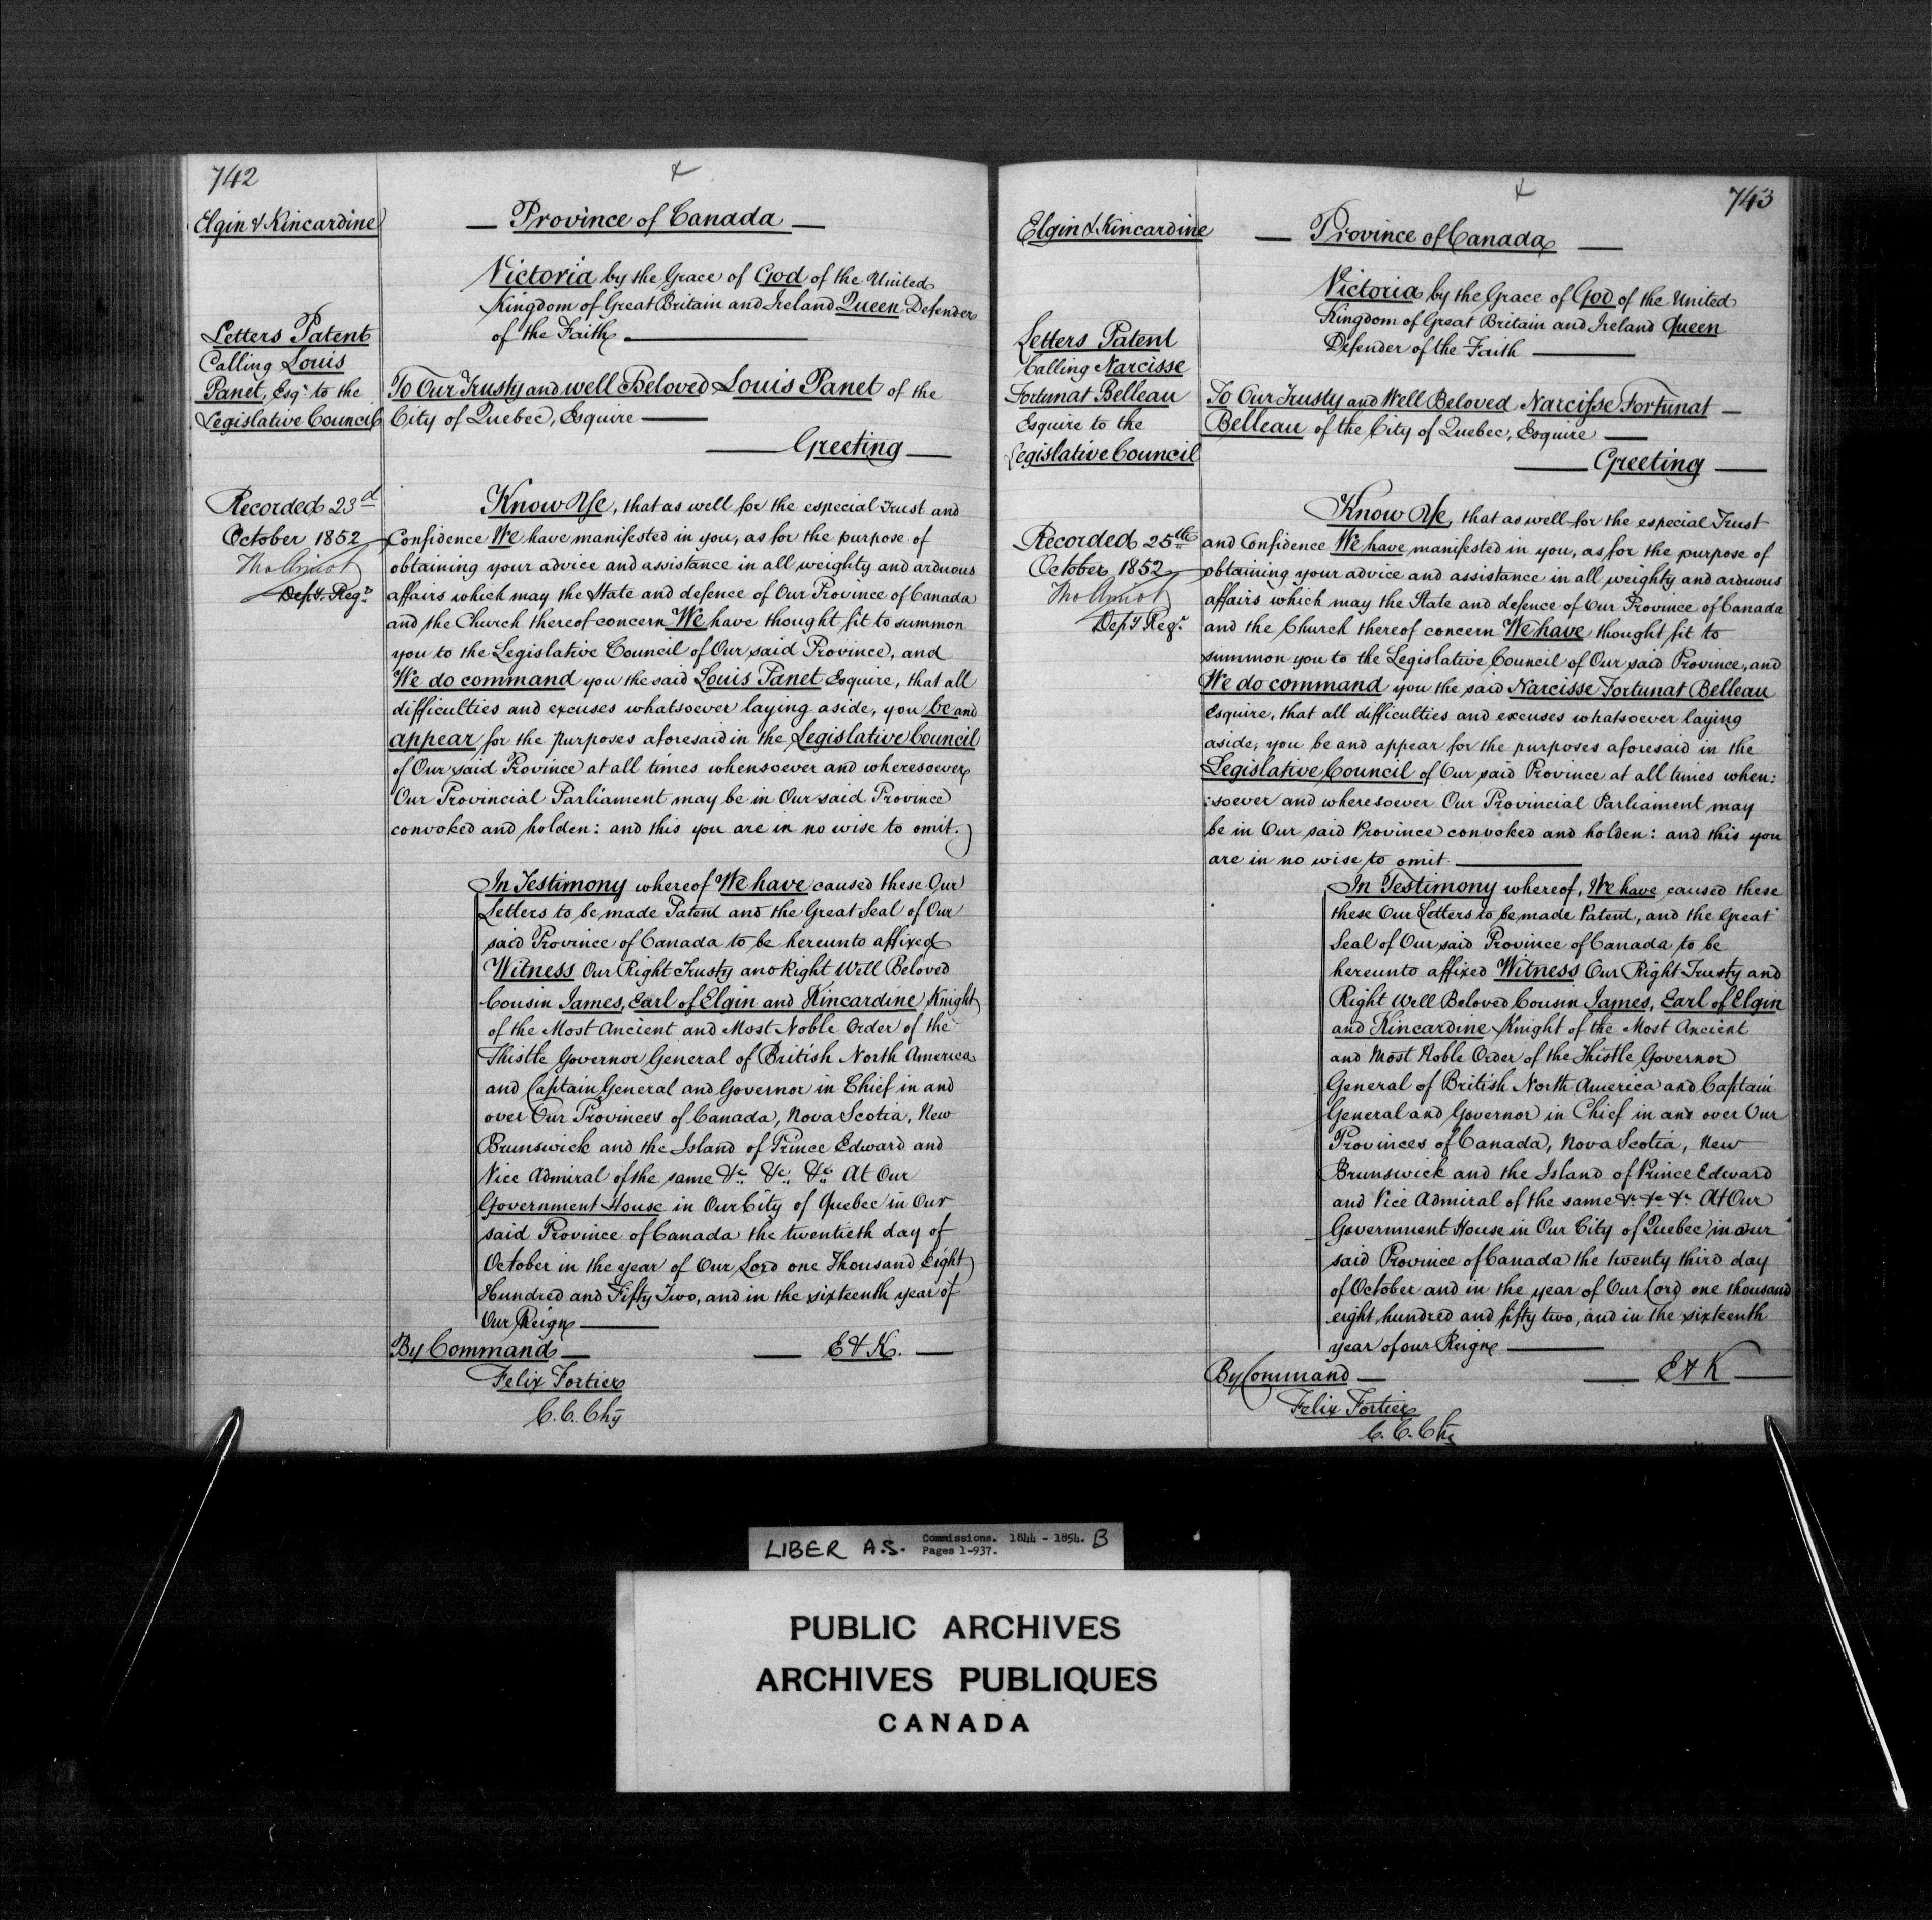 742
Elgin & Kincardine
Letters Patent
Calling Louis
Panet, Esqr. to the
Legislative Council
Recorded 23d
October 1852
Tho Amiot
Depy. Regr.
— Province of Canada —
Victoria by the Grace of God of the United
Kingdom of Great Britain and Ireland Queen Defender
of the Faith
To Our Trusty and well Beloved Louis Panet of the
City of Quebec, Esquire
Greeting
Know Ye, that as well for the especial Trust and
Confidence We have manifested in you, as for the purpose of
obtaining your advice and assistance in all weighty and arduous
affairs which may the State and defence of Our Province of Canada
and the Church thereof concern We have thought fit to summon
you to the Legislative Council of Our said Province, and
We do command you the said Louis Panet Esquire, that all
difficulties and excuses whatsoever laying aside, you be and
appear for the purposes aforesaid in the Legislative Council
of Our said Province at all times whensoever and wheresoever
Our Provincial Parliament may be in Our said Province
convoked and holden: and this you are in no wise to omit.
In Testimony whereof We have caused these Our
Letters to be made Patent and the Great Seal of Our
said Province of Canada to be hereunto affixed
Witness Our Right Trusty and Right Well Beloved
Cousin James, Earl of Elgin and Kincardine Knight
of the Most Ancient and Most Noble Order of the
Thistle Governor General of British North America
and Captain General and Governor in Chief in and
over Our Provinces of Canada, Nova Scotia, New
Brunswick and the Island of Prince Edward and
Vice Admiral of the same &c. &c. &c. At Our
Government House in Our City of Quebec in Our
said Province of Canada the twentieth day of
October in the year of Our Lord one Thousand Eight
Hundred and Fifty Two, and in the sixteenth year of
Our Reign
By Command — — E & K. —
Felix Fortier
C. C. Chy
743
Elgin & Kincardine
Letters Patent
Calling Narcisse
Fortunat Belleau
Esquire to the
Legislative Council
Recorded 25th
October 1852
Tho Amiot
Depy Regr.
— Province of Canada —
Victoria by the Grace of God of the United
Kingdom of Great Britain and Ireland Queen
Defender of the Faith
To Our Trusty and Well Beloved Narcisse Fortunat
Belleau of the City of Quebec, Esquire
Greeting
Know Ye, that as well for the especial Trust
and Confidence We have manifested in you, as for the purpose of
obtaining your advice and assistance in all weighty and arduous
affairs which may the State and defence of Our Province of Canada
and the Church thereof concern We have thought fit to
summon you to the Legislative Council of Our said Province, and
We do command you the said Narcisse Fortunat Belleau
Esquire, that all difficulties and excuses whatsoever laying
aside, you be and appear for the purposes aforesaid in the
Legislative Council of Our said Province at all times when:
:soever and wheresoever Our Provincial Parliament may
be in Our said Province convoked and holden: and this you
are in no wise to omit.
In Testimony whereof, We have caused these
these Our Letters to be made Patent, and the Great
Seal of Our said Province of Canada to be
hereunto affixed Witness Our Right Trusty and
Right Well Beloved Cousin James, Earl of Elgin
and Kincardine Knight of the Most Ancient
and Most Noble Order of the Thistle Governor
General of British North America and Captain
General and Governor in Chief in and over Our
Provinces of Canada, Nova Scotia, New
Brunswick and the Island of Prince Edward
and Vice Admiral of the same &c. &c. &c. At Our
Government House in Our City of Quebec in our
said Province of Canada the twenty third day
of October and in the year of Our Lord one thousand
eight hundred and fifty two, and in the sixteenth
year of our Reign
By Command — — E & K —
Felix Fortier
C. C. Chy
LIBER A.S. Commissions. 1844 - 1854. B
Pages 1-937.
PUBLIC ARCHIVES
ARCHIVES PUBLIQUES
CANADA